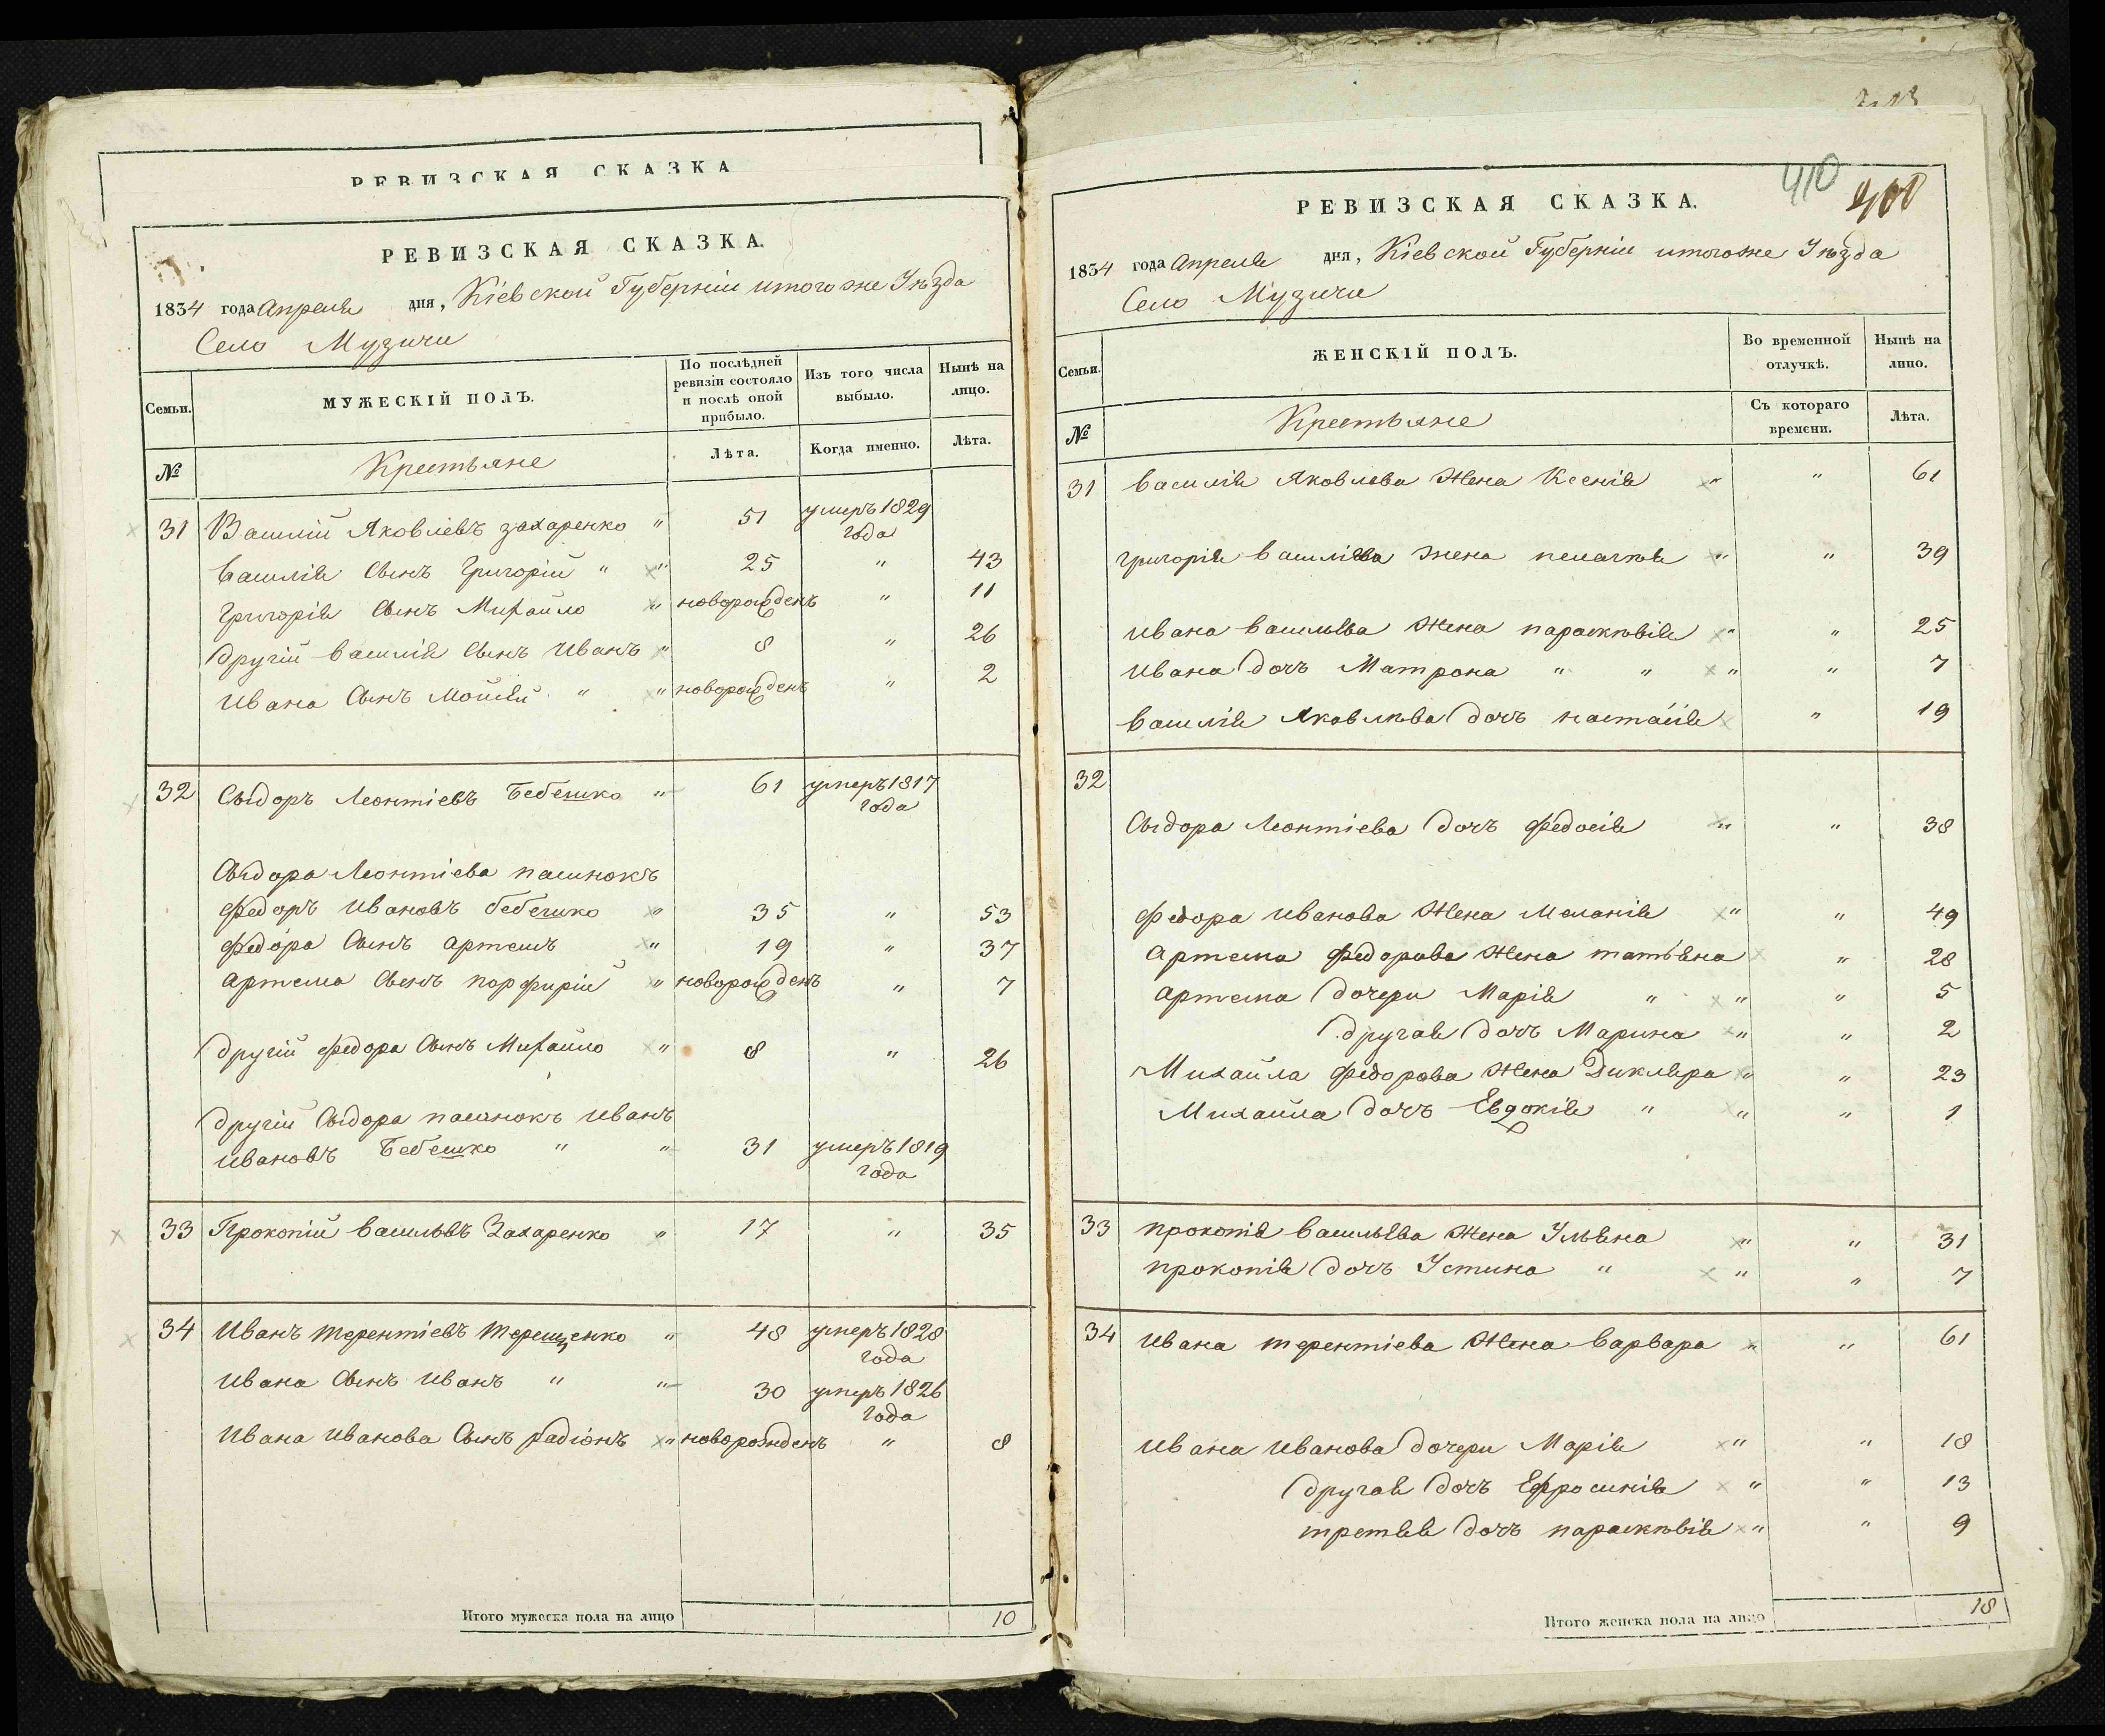 РЕВИЗСКАЯ СКАЗКА
РЕВИЗСКАЯ СКАЗКА.
1834 года Апреля дня, Кіевской Губерніи итогоже Уѣзда
Село Музичи
Семьи. МУЖЕСКІЙ ПОЛЪ. По послѣдней ревизіи состояло и послѣ оной прибыло. Изъ того числа выбыло. Нынѣ на лицо.
№ Крестьяне Лѣта. Когда именно. Лѣта.
31 Василій Яковлевъ захаренко " 51 умеръ 1829 года
василія Сынъ Григорій " " 25 " 43
Григорія Сынъ Михайло " новорожденъ " 11
другій василія Сынъ Иванъ " 8 " 26
Ивана Сынъ Мойсей " " новорожденъ " 2
32 Сыдоръ Леонтіевъ Бебешко " 61 умеръ 1817 года
Сыдора Леонтіева пасинокъ
Федоръ Ивановъ бебешко " 35 " 53
Федора Сынъ артемъ " 19 " 37
артема Сынъ порфирій " новорожденъ " 7
другій федора Сынъ Михайло " 8 " 26
другій Сыдора пасинокъ Иванъ
Ивановъ Бебешко " " 31 умеръ 1819 года
33 Прокопій васильевъ Захаренко " 17 " 35
34 Иванъ терентіевъ терещенко " 48 умеръ 1828 года
Ивана Сынъ Иванъ " " 30 умеръ 1826 года
Ивана Иванова Сынъ радіонъ " новорожденъ " 8
Итого мужеска пола на лицо 10
410 400
РЕВИЗСКАЯ СКАЗКА.
1834 года Апреля дня, Кіевской Губерніи итогоже Уѣзда
Село Музичи
Семьи. ЖЕНСКІЙ ПОЛЪ. Во временной отлучкѣ. Нынѣ на лицо.
№ Крестьяне Съ котораго времени. Лѣта.
31 василія Яковлева Жена Ксенія " " 61
григорія василіева жена пелагія " " 39
Ивана васильева Жена параскѣвія " " 25
Ивана дочъ Матрона " " " " 7
василія Яковлева дочъ настасія " 19
32
Сыдора Леонтіева дочъ федосія " " 38
Федора Иванова Жена Меланія " " 49
артема федорова Жена татьяна " 28
артема дочери Марія " " " 5
другая дочъ Марина " " 2
Михайла федорова Жена Дикляра " " 23
Михайла дочъ Евдокія " " " 1
33 прокопія васильева Жена Ульяна " " 31
прокопія дочъ Устина " " " 7
34 Ивана терентіева Жена варвара " " 61
Ивана Иванова дочери Марія " " 18
другая дочъ Ефросинія " " 13
третяя дочъ параскѣвія " " 9
Итого женска пола на лицо 18